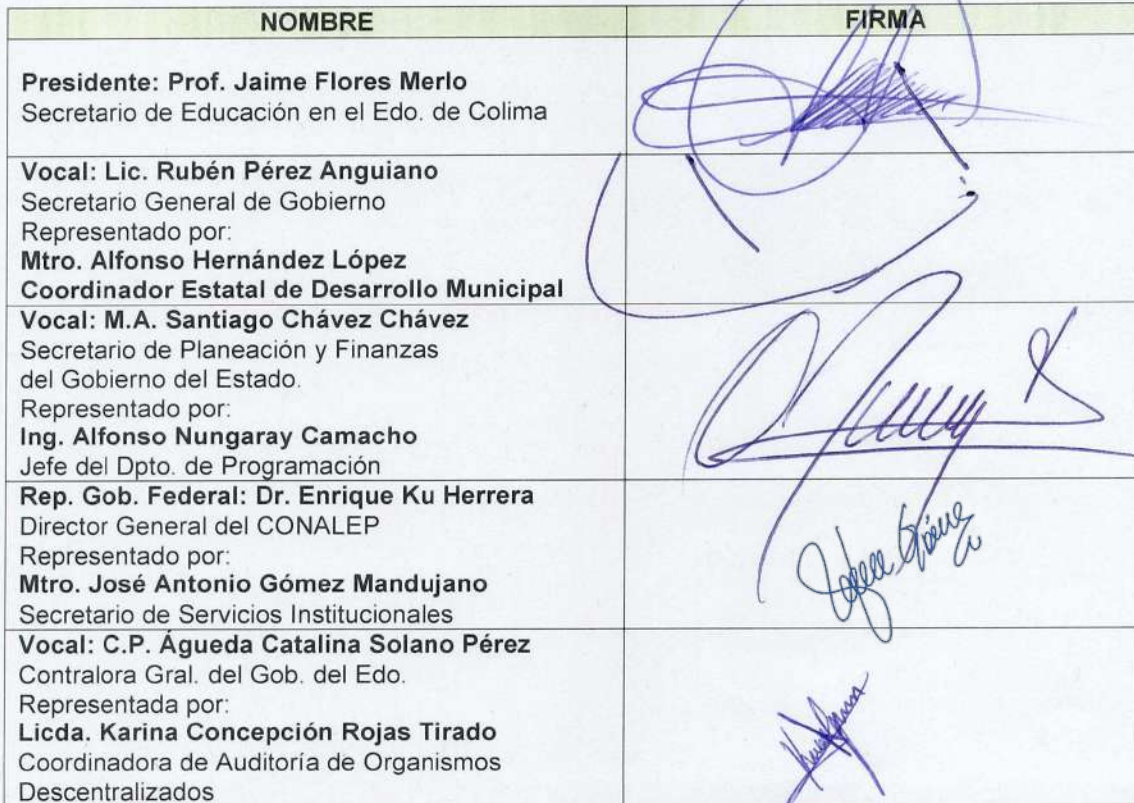 NOMBRE FIRMA
Presidente: Prof. Jaime Flores Merlo
Secretario de Educación en el Edo. de Colima
Vocal: Lic. Rubén Pérez Anguiano
Secretario General de Gobierno
Representado por:
Mtro. Alfonso Hernández López
Coordinador Estatal de Desarrollo Municipal
Vocal: M.A. Santiago Chávez Chávez
Secretario de Planeación y Finanzas
del Gobierno del Estado.
Representado por:
Ing. Alfonso Nungaray Camacho
Jefe del Dpto. de Programación
Rep. Gob. Federal: Dr. Enrique Ku Herrera
Director General del CONALEP
Representado por:
Mtro. José Antonio Gómez Mandujano
Secretario de Servicios Institucionales
Vocal: C.P. Águeda Catalina Solano Pérez
Contralora Gral. del Gob. del Edo.
Representada por:
Licda. Karina Concepción Rojas Tirado
Coordinadora de Auditoría de Organismos
Descentralizados